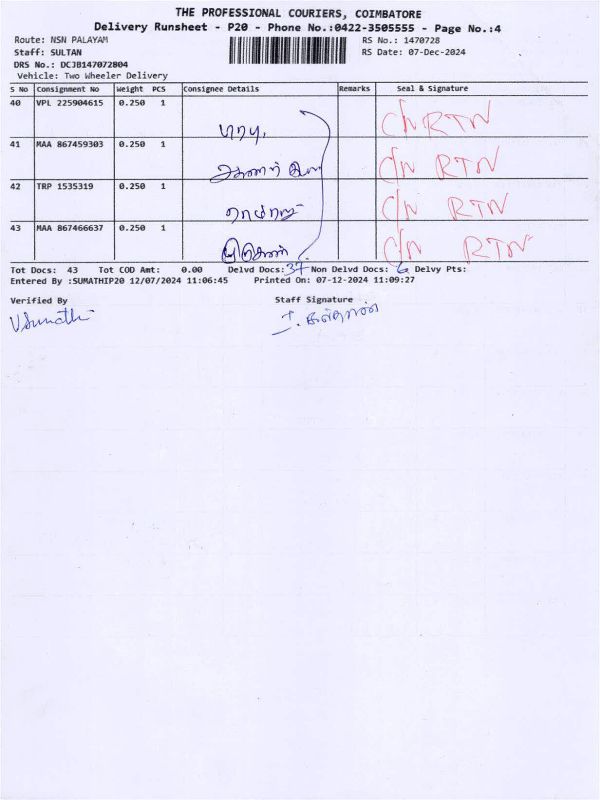 THE PROFESSIONAL COURIERS, COIMBATORE
Delivery Runsheet - P20 - Phone No.:0422-3505555 - Page No.:4
Route: NSN PALAYAM
RS No.: 1470728
Staff: SULTAN
RS Date: 07-Dec-2024
DRS No.: DCJB147072804
Vehicle: Two Wheeler Delivery
S No Consignment No Weight PCS Consignee Details Remarks Seal & Signature
40 VPL 225904615 0.250 1
C/N RTN
41 MAA 867459303 0.250 1
C/N RTN
42 TRP 1535319 0.250 1
C/N RTN
43 MAA 867466637 0.250 1
C/N RTN
Tot Docs: 43 Tot COD Amt: 0.00 Delvd Docs: 37 Non Delvd Docs: 6 Delvy Pts:
Entered By :SUMATHIP20 12/07/2024 11:06:45 Printed On: 07-12-2024 11:09:27
Verified By Staff Signature
VSumathi